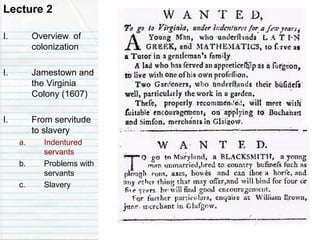 Lecture 2
I. Overview of
colonization
I. Jamestown and
the Virginia
Colony (1607)
I. From servitude
to slavery
a. Indentured
servants
b. Problems with
servants
c. Slavery
WANTED,
To go to Virginia, under indentures for a few years,
A Young Man, who understands LATIN
GREEK, and MATHEMATICS, to serve as
a Tutor in a gentleman's family.
A lad who has served an appreticeship as a surgeon,
to live with one of his own profession.
Two Gardeners, who understand their business
well, particularly the work in a garden.
These, properly recommended, will meet with
suitable encouragement, on applying to Buchanan
and Simson, merchants in Glasgow.
WANTED.
TO go to Maryland, a BLACKSMITH, a young
man unmarried, bred to country business such as
plough irons, axes, hows and can shoe a horse, and
any other thing that may offer, and will bind for four or
five years. he will find good encouragement.
For further particulars, enquire at William Brown,
merchant in Glasgow.